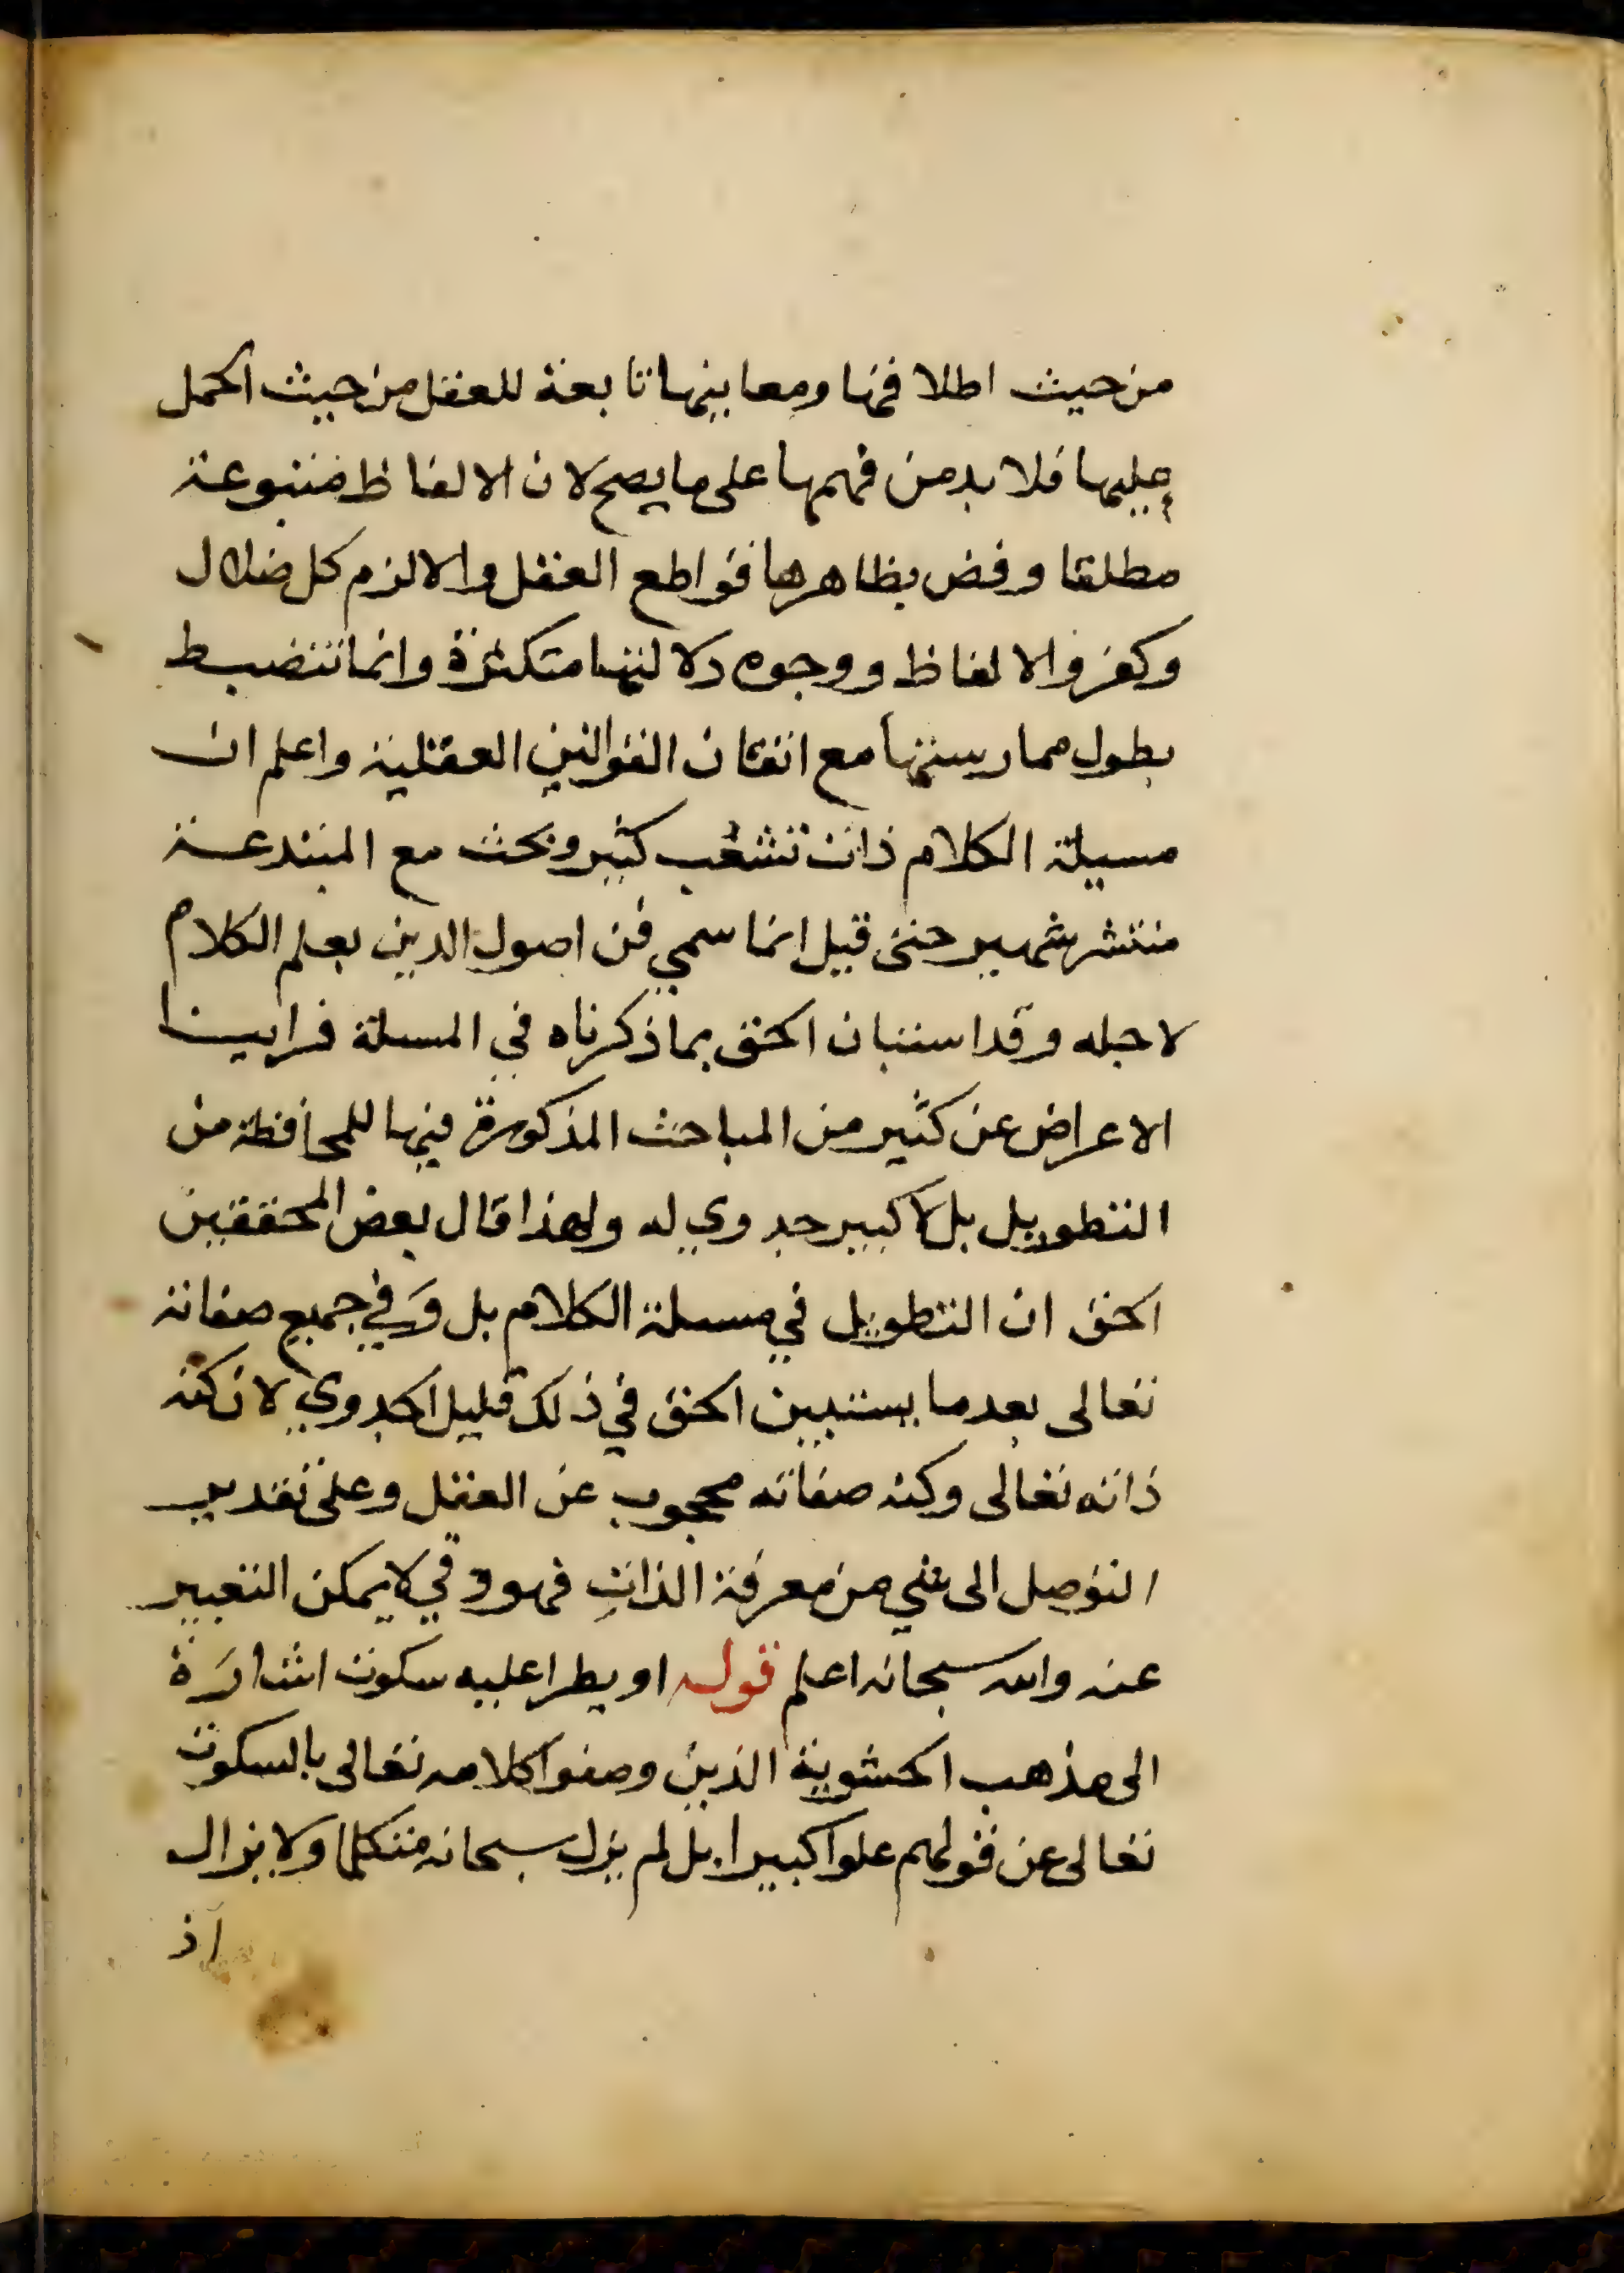 من حيث اطلاقها ومعانيها تابعة للعقل من حيث الحمل
عليها فلا بد من فهمها على ما يصح لان الالفاظ متبوعة
مطلقا ورفض بظاهرها قواطع العقل والالزم كل ضلال
وكفر والالفاظ ووجوه دلالتها متكثرة وانما تنضبط
بطول ممارستها مع اتقان القوانين العقلية واعلم ان
مسيلة الكلام ذات تشعب كثير وبحث مع المبتدعة
منتشر شهير حتى قيل انما سمي فن اصول الدين بعلم الكلام
لاجله وقد استبان الحق بما ذكرناه في المسلة فراينا
الاعراض عن كثير من المباحث المذكورة فيها للمحافظة من
التطويل بلا كبير جدوي له ولهذا قال بعض المحققين
الحق ان التطويل في مسلة الكلام بل وفي جميع صفاته
تعالى بعد ما يستبين الحق في ذلك قليل الجدوي لان كنه
ذاته تعالى وكنه صفاته محجوب عن العقل وعلى تقدير
التوصل الى شي من معرفة الذات فهو ذوقي لا يمكن التعبير
عنه والله سبحانه اعلم قوله او يطرا عليه سكوت اشارة
الى مذهب الحشوية الذين وصفوا كلامه تعالى بالسكوت
تعالى عن قولهم علوا كبيرا بل لم يزل سبحانه متكلما ولا يزال
اذ